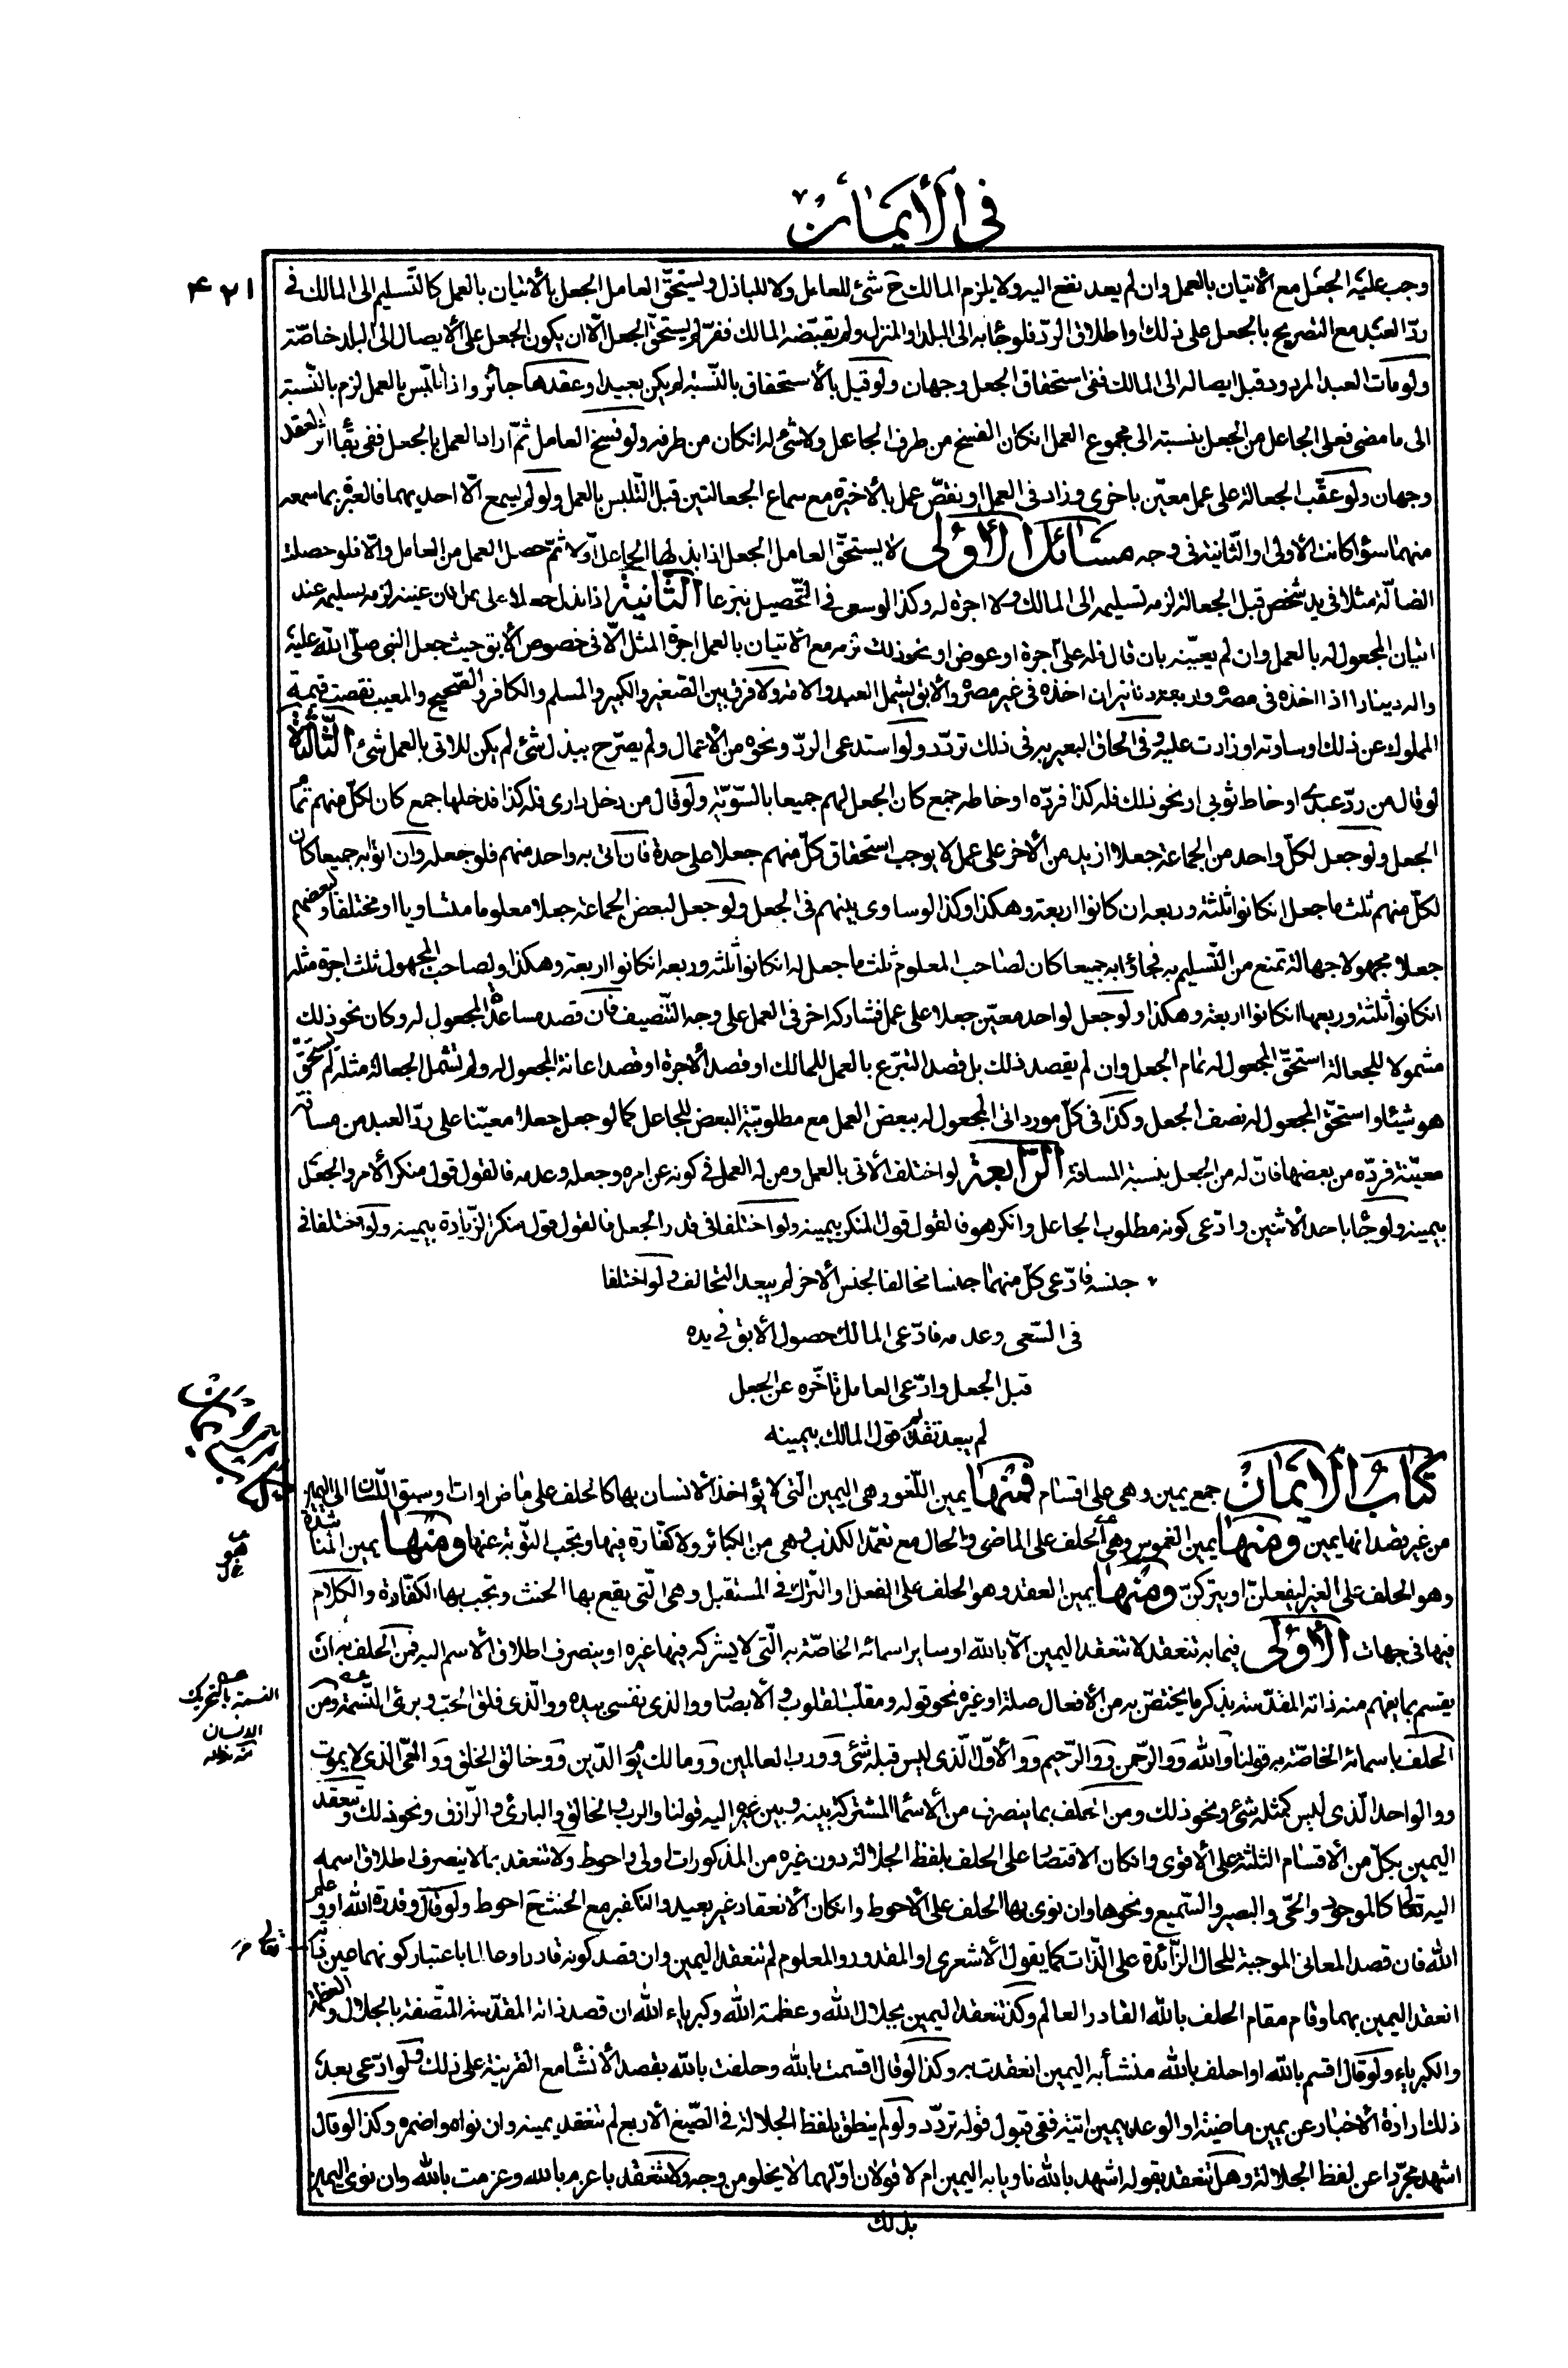 في الأيمان
٤٢١
وجب عليه الجعل مع الأتيان بالعمل وان لم يعد نفع اليه ولا يلزم المالك ح شئ للعامل ولا للباذل ويستحقّ العامل الجعل بالأتيان بالعمل كالتّسليم الى المالك في
ردّ العبد مع التصريح بالجعل على ذلك او اطلاق الردّ فلو جاء به الى البلد او المنزل ولم يقبّضه المالك ففرّ لم يستحقّ الجعل الّا ان يكون الجعل على الأيصال الى البلد خاصّة
ولو مات العبد المردود قبل ايصاله الى المالك ففى استحقاق الجعل وجهان ولو قيل بالأستحقاق بالنّسبة لم يكن بعيدا وعقدها جائز واذا تلبّس بالعمل لزم بالنّسبة
الى ما مضى فعلى الجاعل من الجعل بنسبته الى مجموع العمل انكان الفسخ من طرف الجاعل ولا شئ له انكان من طرفه ولو فسخ العامل ثمّ اراد العمل بالجعل ففى بقاء اثر العقد
وجهان ولو عقّب الجعالة على عمل معيّن باخرى وزاد في العمل او نقصّ عمل بالأخيرة مع سماع الجعالتين قبل التّلبس بالعمل ولو لم يسمع الّا احديهما فالعبرة بما سمعه
منهما سواء كانت الأولى او الثّانية في وجه مسائل الأولى لا يستحقّ العامل الجعل اذا بذلها الجاعل اوّلا ثمّ حصل العمل من العامل والّا فلو حصلت
الضالّة مثلا في يد شخص قبل الجعالة لزمه تسليمه الى المالك ولا اجرة له وكذا لو سعى في التّحصيل تبرعا الثّانية اذا بذل جعلا على عمل فان عيّنه لزمه تسليمه عند
اتيان المجعول له بالعمل وان لم يعيّنه بان قال فله علىّ اجرة او عوض او نحو ذلك لزمه مع الأتيان بالعمل اجرة المثل الّا في خصوص الأبق حيث جعل النبى صلّى الله عليه
واله دينارا اذا اخذه في مصره واربعة دنانير ان اخذه في غير مصره والأبق يشمل العبد والامة ولا فرق بين الصّغير والكبير والمسلم والكافر والصّحيح والمعيب نقصت قيمة
المملوك عن ذلك او ساوته او زادت عليه وفي الحاق البعير به في ذلك تردّد ولو استدعى الردّ ونحوه من الأعمال ولم يصرّح ببذل شئ لم يكن للاتى بالعمل شئ الثّالثة
لو قال من ردّ عبدى او خاط ثوبى او نحو ذلك فله كذا فردّه او خاطه جمع كان الجعل لهم جميعا بالسّويّة ولو قال من دخل دارى فله كذا فدخلها جمع كان لكلّ منهم تمام
الجعل ولو جعل لكلّ واحد من الجماعة جعلا ازيد من الأخر على عمل لا يوجب استحقاق كلّ منهم جعلا على حدة فان اتى به واحد منهم فله جعله وان اتوا به جميعا كان
لكلّ منهم ثلث ما جعل انكانوا ثلثة وربعه ان كانوا اربعة وهكذا وكذا لو ساوى بينهم في الجعل ولو جعل لبعض الجماعة جعلا معلوما متساويا او مختلفا ولبعضهم
جعلا مجهولا جهالة تمنع من التّسليم به فجاؤا به جميعا كان لصاحب المعلوم ثلث ما جعل له انكانوا ثلثة وربعه انكانوا اربعة وهكذا ولصاحب المجهول ثلث اجرة مثله
انكانوا ثلثة وربعها انكانوا اربعة وهكذا ولو جعل لواحد معيّن جعلا على عمل فشاركه اخر في العمل على وجه التّنصيف فان قصد مساعدة المجعول له وكان نحو ذلك
مشمولا للجعالة استحقّ المجعول له تمام الجعل وان لم يقصد ذلك بل قصد التبرّع بالعمل للمالك او قصد الأجرة او قصد اعانة المجعول له ولم تشمل الجعالة مثله لم يستحقّ
هو شيئا واستحقّ المجعول له نصف الجعل وكذا في كلّ مورد اتى المجعول له ببعض العمل مع مطلوبيّة البعض للجاعل كما لو جعل جعلا معيّنا على ردّ العبد من مسافة
معيّنة فردّه من بعضها فانّ له من الجعل بنسبة المسافة الرّابعة لو اختلف الأتى بالعمل ومن له العمل في كونه عن امره وجعله وعدمه فالقول قول منكر الأمر والجعل
بيمينه ولو جاء باحد الأثنين وادّعى كونه مطلوب الجاعل وانكر هو فالقول قول المنكر بيمينه ولو اختلفا في قدر الجعل فالقول قول منكر الزّيادة بيمينه ولو اختلفا في
جنسه فادّعى كلّ منهما جنسا مخالفا لجنس الأخر لم يبعد التحالف ولو اختلفا
في السّعى وعدمه فادّعى المالك حصول الأبق في يده
قبل الجعل وادّعى العامل تأخّره عن الجعل
لم يبعد تقديم قول المالك بيمينه
كتاب الأيمان جمع يمين وهى على اقسام فمنها يمين اللّغو وهى اليمين الّتى لا يؤاخذ الأنسان بها كالحلف على ماض او ات او سبق اللّسان الى اليمين
من غير قصد انها يمين ومنها يمين الغموس وهى الحلف على الماضى والحال مع تعمّد الكذب وهى من الكبائر ولا كفّارة فيها ويجب التّوبة عنها ومنها يمين المناشدة
وهو الحلف على الغير ليفعلنّ او يتركنّ ومنها يمين العقد وهو الحلف على الفعل او التّرك في المستقبل وهى الّتى يقع بها الحنث وتجب بها الكفّارة والكلام
فيها في جهات الأولى فيما به تنعقد لا تنعقد اليمين الّا بالله او ساير اسمائه الخاصّة به الّتى لا يشركه فيها غيره او ينصرف اطلاق الأسم اليه فمن الحلف به ان
يقسم بما يفهم منه ذاته المقدّسة بذكر ما يختصّ به من الأفعال صلة او غيره نحو قوله ومقلّب القلوب والأبصار ووالذى نفسى بيده ووالّذى فلق الحبّ وبرئ النّسمة ومن
الحلف باسمائه الخاصّة به قولنا والله ووالرّحمن ووالرّحيم ووالأوّل الّذى ليس قبله شئ وورب العالمين وومالك يوم الدّين ووخالق الخلق ووالحىّ الذى لا يموت
ووالواحد الّذى ليس كمثله شئ ونحو ذلك ومن الحلف بما ينصرف من الأسماء المشتركة بينه وبين غيره اليه قولنا والرب والخالق والبارئ والرّازق ونحو ذلك وتنعقد
اليمين بكلّ من الأقسام الثلثة على الأقوى وانكان الاقتصار على الحلف بلفظ الجلالة دون غيره من المذكورات اولى واحوط ولا تنعقد بما لا ينصرف اطلاق اسمه
اليه تعالى كالموجود والحىّ والبصير والسّميع ونحوها وان نوى بها الحلف على الأحوط وانكان الأنعقاد غير بعيد والتكفير مع الحنث ح احوط ولو قال وقدرة الله او وعلم
الله فان قصد المعانى الموجبة للحال الزّائدة على الذّات كما يقول الأشعرى او المقدور والمعلوم لم تنعقد اليمين وان قصد كونه قادرا وعالما باعتبار كونهما عين ذاته
انعقد اليمين بهما وقام مقام الحلف بالله القادر العالم وكذا تنعقد اليمين بجلال الله وعظمة الله وكبرياء الله ان قصد ذاته المقدّسة المتّصفة بالجلال والعظمة
والكبرياء ولو قال اقسم بالله او احلف بالله منشأ به اليمين انعقدت به وكذا لو قال اقسمت بالله وحلفت بالله بقصد الأنشاء مع القرينة على ذلك ولو ادّعى بعد
ذلك ارادة الأخبار عن يمين ماضية او الوعد بيمين اتية ففى قبول قوله تردّد ولو لم ينطق بلفظ الجلالة في الصّيغ الأربع لم تنعقد يمينه وان نواه واضمره وكذا لو قال
اشهد مجرّدا عن لفظ الجلالة وهل تنعقد بقوله اشهد بالله ناويا به اليمين ام لا قولان اوّلهما لا يخلو من وجه ولا تنعقد باعزم بالله وعزمت بالله وان نوى اليمين
هو
النسمة بالتحريك
الانسان
بذلك